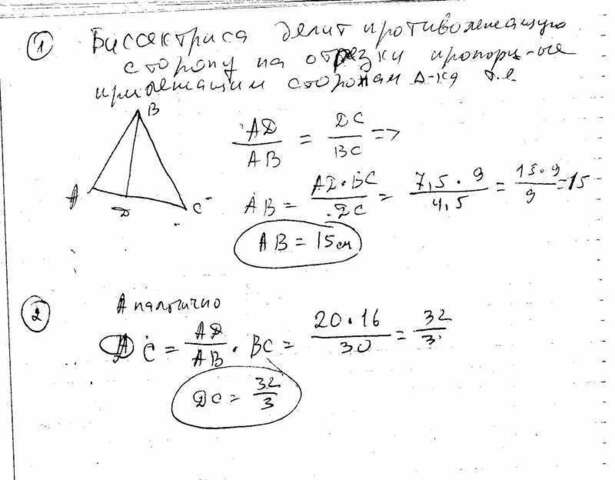 ① Биссектриса делит противолежащую
сторону на отрезки пропорц-ые
прилежащим сторонам Δ-ка т.е.
B
A
D
C
AD/AB = DC/BC =>
AB = AD·BC/DC = 7,5·9/4,5 = 15·9/9 = 15
AB = 15 см
② Аналогично
DC = AD/AB · BC = 20·16/30 = 32/3
DC = 32/3